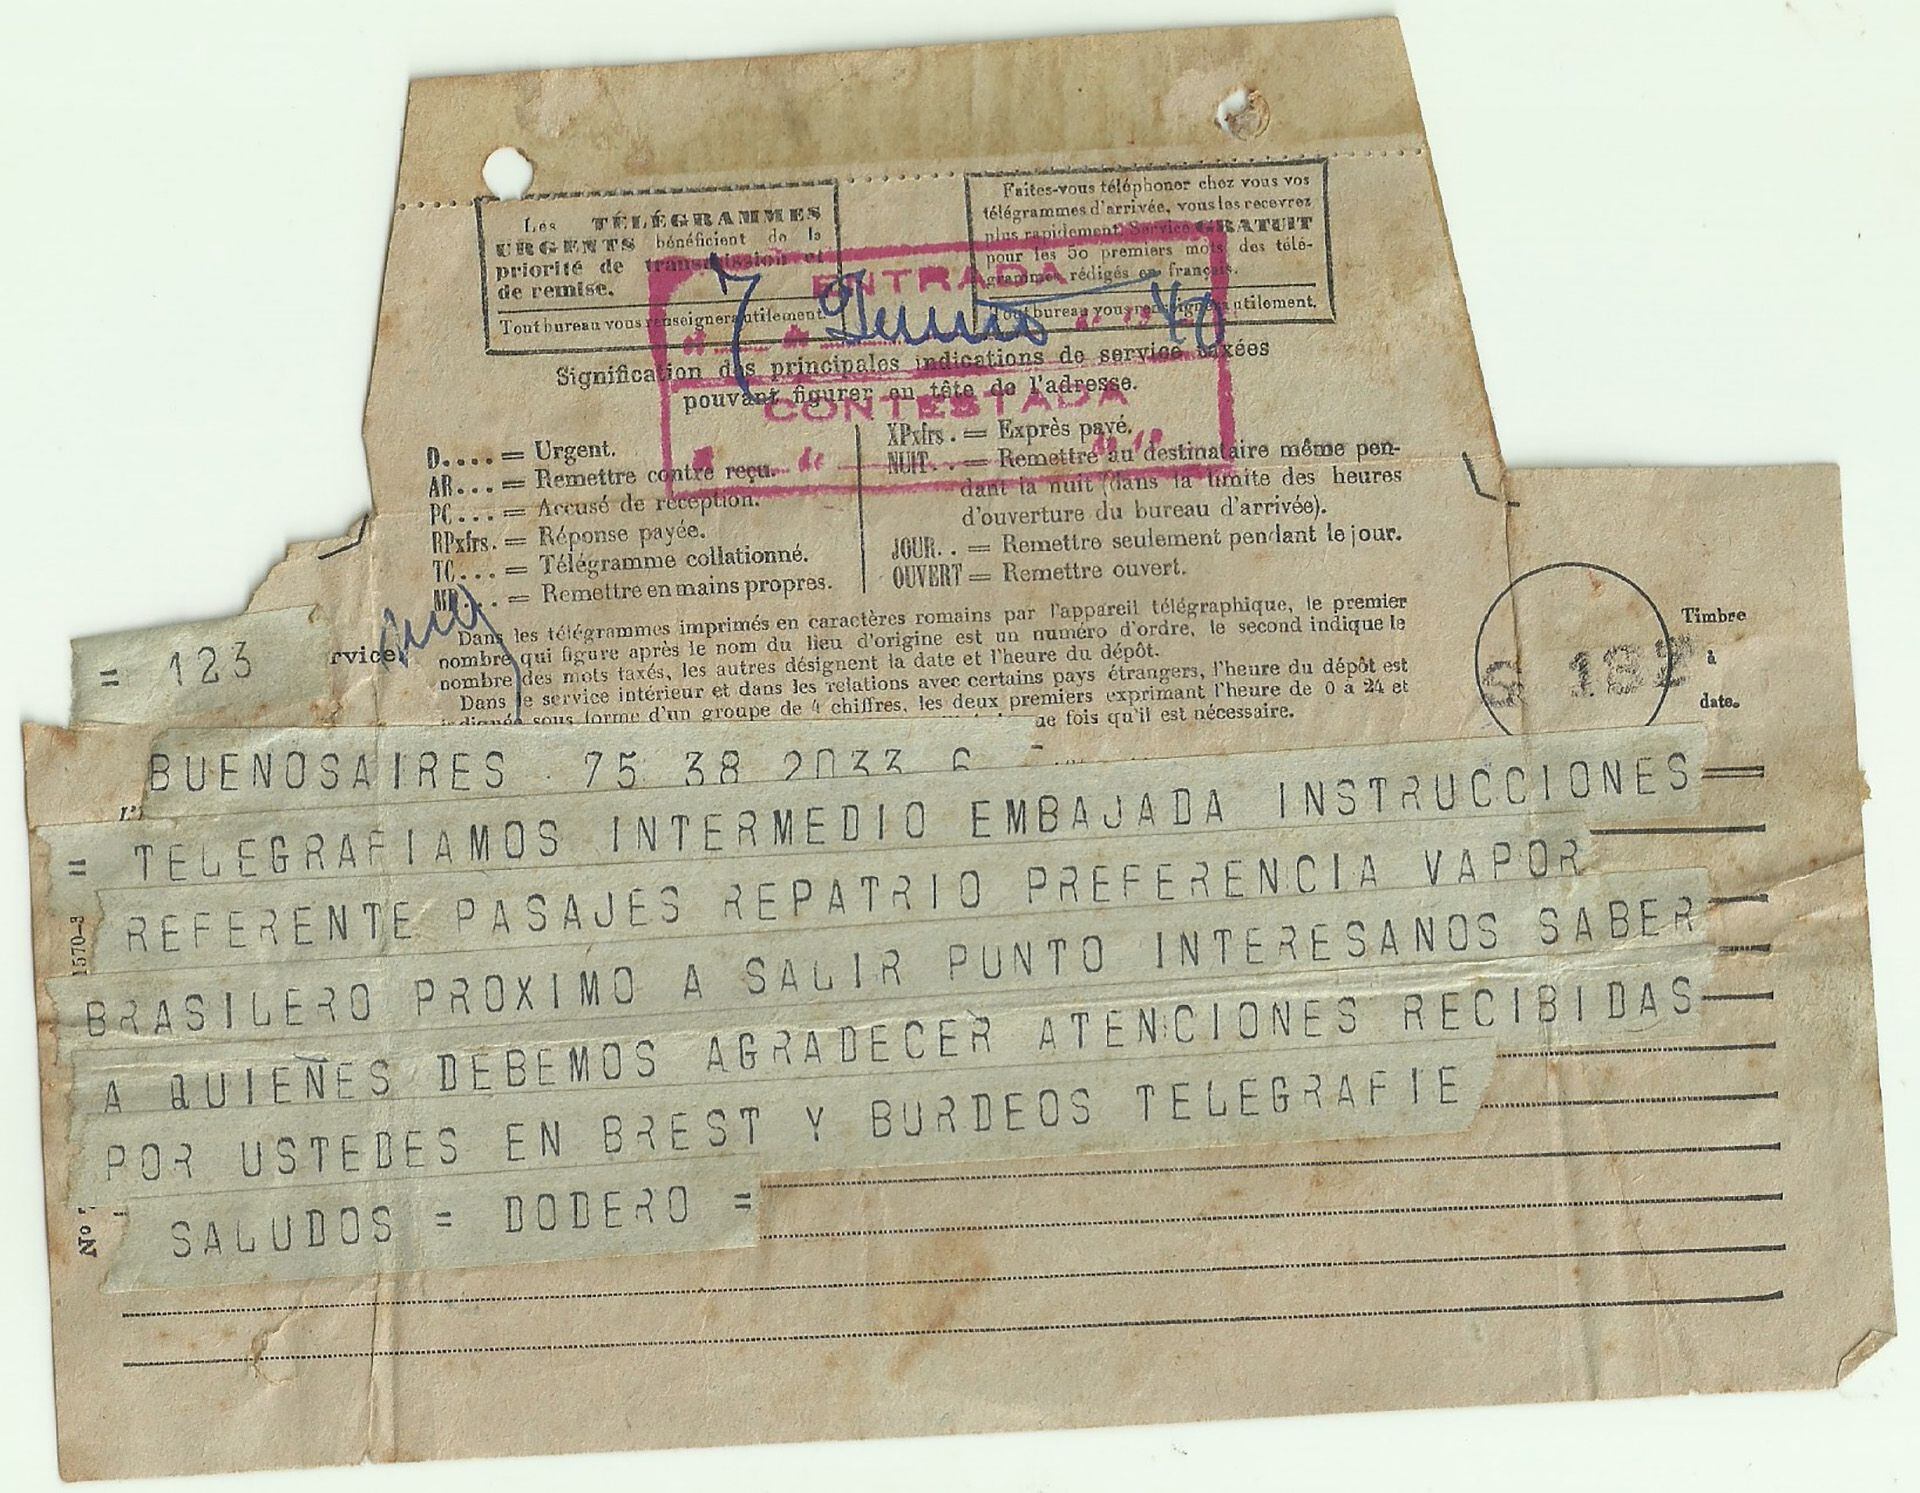 Les TÉLÉGRAMMES
URGENTS bénéficient de la
priorité de transmission et
de remise.
Tout bureau vous renseignera utilement.
Faites-vous téléphoner chez vous vos
télégrammes d'arrivée, vous les recevrez
plus rapidement. Service GRATUIT
pour les 50 premiers mots des télé-
grammes rédigés en français.
Tout bureau vous renseignera utilement.
ENTRADA
7 Junio 40
CONTESTADA
de
Signification des principales indications de service taxées
pouvant figurer en tête de l'adresse.
D.... = Urgent.
AR... = Remettre contre reçu.
PC... = Accusé de réception.
RPxfrs. = Réponse payée.
TC... = Télégramme collationné.
MP... = Remettre en mains propres.
XPxfrs. = Exprès payé.
NUIT.. = Remettre au destinataire même pen-
dant la nuit (dans la limite des heures
d'ouverture du bureau d'arrivée).
JOUR.. = Remettre seulement pendant le jour.
OUVERT = Remettre ouvert.
Dans les télégrammes imprimés en caractères romains par l'appareil télégraphique, le premier
nombre qui figure après le nom du lieu d'origine est un numéro d'ordre, le second indique le
nombre des mots taxés, les autres désignent la date et l'heure du dépôt.
Dans le service intérieur et dans les relations avec certains pays étrangers, l'heure du dépôt est
indiquée sous forme d'un groupe de 4 chiffres, les deux premiers exprimant l'heure de 0 à 24 et
fois qu'il est nécessaire.
rvice.
Timbre
à
date.
S 182
= 123
BUENOSAIRES 75 38 2033 6
= TELEGRAFIAMOS INTERMEDIO EMBAJADA INSTRUCCIONES
REFERENTE PASAJES REPATRIO PREFERENCIA VAPOR
BRASILERO PROXIMO A SALIR PUNTO INTERESANOS SABER
A QUIENES DEBEMOS AGRADECER ATENCIONES RECIBIDAS
POR USTEDES EN BREST Y BURDEOS TELEGRAFIE
SALUDOS = DODERO =
1570-3
Nº